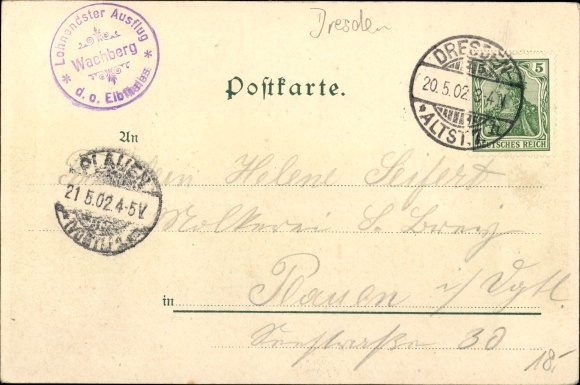 Lohnendster Ausflug
* Wachberg *
d. o. Elbthales.
Dresden
Postkarte.
DRESDEN
20.5.02. 3-4V
* ALTST. 7.
5
DEUTSCHES REICH
An
Helene Seifert
PLAUEN
21.5.02.4-5V
(VOGTL)
Molkerei
in Plauen i/Vgtl.
Seestraße 30
18.-